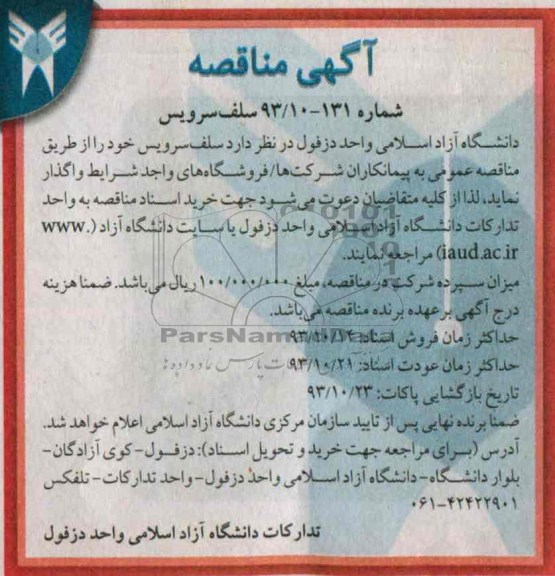 آگهی مناقصه
شماره ۱۳۱-۹۳/۱۰ سلف سرویس
دانشگاه آزاد اسلامی واحد دزفول در نظر دارد سلف سرویس خود را از طریق
مناقصه عمومی به پیمانکاران شرکت‌ها/فروشگاه‌های واجد شرایط واگذار
نماید، لذا از کلیه متقاضیان دعوت می‌شود جهت خرید اسناد مناقصه به واحد
تدارکات دانشگاه آزاد اسلامی واحد دزفول یا سایت دانشگاه آزاد (www.
iaud.ac.ir) مراجعه نمایند.
میزان سپرده شرکت در مناقصه، مبلغ ۱۰۰/۰۰۰/۰۰۰ ریال می‌باشد. ضمنا هزینه
درج آگهی برعهده برنده مناقصه می‌باشد.
ParsNamadData
حداکثر زمان فروش اسناد: ۹۳/۱۰/۱۴
حداکثر زمان عودت اسناد: ۹۳/۱۰/۲۱
تاریخ بازگشایی پاکات: ۹۳/۱۰/۲۳
ضمنا برنده نهایی پس از تایید سازمان مرکزی دانشگاه آزاد اسلامی اعلام خواهد شد.
آدرس (برای مراجعه جهت خرید و تحویل اسناد): دزفول-کوی آزادگان-
بلوار دانشگاه-دانشگاه آزاد اسلامی واحد دزفول-واحد تدارکات-تلفکس
۰۶۱-۴۲۴۲۲۹۰۱
تدارکات دانشگاه آزاد اسلامی واحد دزفول